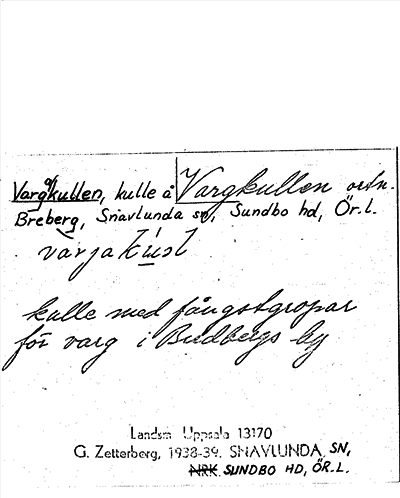 Vargkullen, kulle å Vargkullen ortn.
Breberg, Snavlunda sn, Sundbo hd, Ör.l.
varja
kulle med fångstgropar
för varg i Bredbergs by
Landsm Uppsala 13170
G. Zetterberg, 1938-39. SNAVLUNDA SN,
NRK SUNDBO HD, ÖR.L.